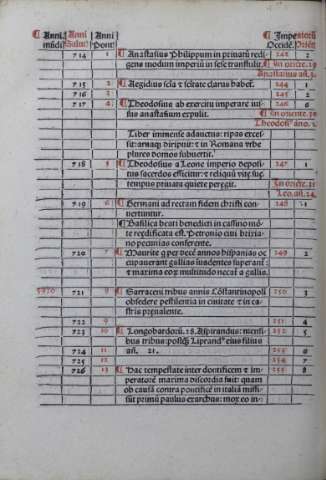 Anni mūdi Anni Salut⁹ Anni Pont⁹ Impatorū Occidē. Oriēn.
714 1 Anastasius Philippum in priuatū redi- 242 2
gens modum imperiū in sese transtulit. In oriēte.
Anastasius añ.3.
715 2 Aegidius scīa et scītate clarus habet. 244 1
716 3 245 2
717 4 Theodosius ab exercitu imperare ius- 246 6
sus anastasium expulit. In oriente.
Theodosi⁹ āno.
Tiber immense adauctus: ripas exces-
sit: arua diripuit: et in Romana vrbe
plures domos subuertit.
718 5 Theodosius a Leone imperio deposi- 247 1
tus sacerdos efficitur: et reliquū vite sue
tempus priuata quiete peregit. In oriēte.
Leo.añ.24.
719 6 Germani ad rectam fidem christi con- 248 1
uertuntur.
Basilica beati benedicti in cassino mō-
te reedificata est. Petronio ciui brixia-
no pecunias conferente.
720 7 Maurite qui per decē annos hispaniā oc- 249 2
cupauerant gallias inuadentes superant:
et maxima eorum multitudo necat a gallis.
5920 721 8 Sarraceni tribus annis Cōstantinopolī 250 3
obsedere pestilentia in ciuitate et in ca-
stris preualente.
722 9 251 4
723 10 Longobardorū.18.Aspirandus: mensi- 252 5
bus tribus: postquam Liprandus eius filius
724 11 añ. 21. 253 6
725 12 254 7
726 13 Hac tempestate inter pontificem et im- 255 8
peratorē maxima discordia fuit: quam
ob causā contra pontificē in italiā mis-
sit primū paulus exarchus: mox eo in-